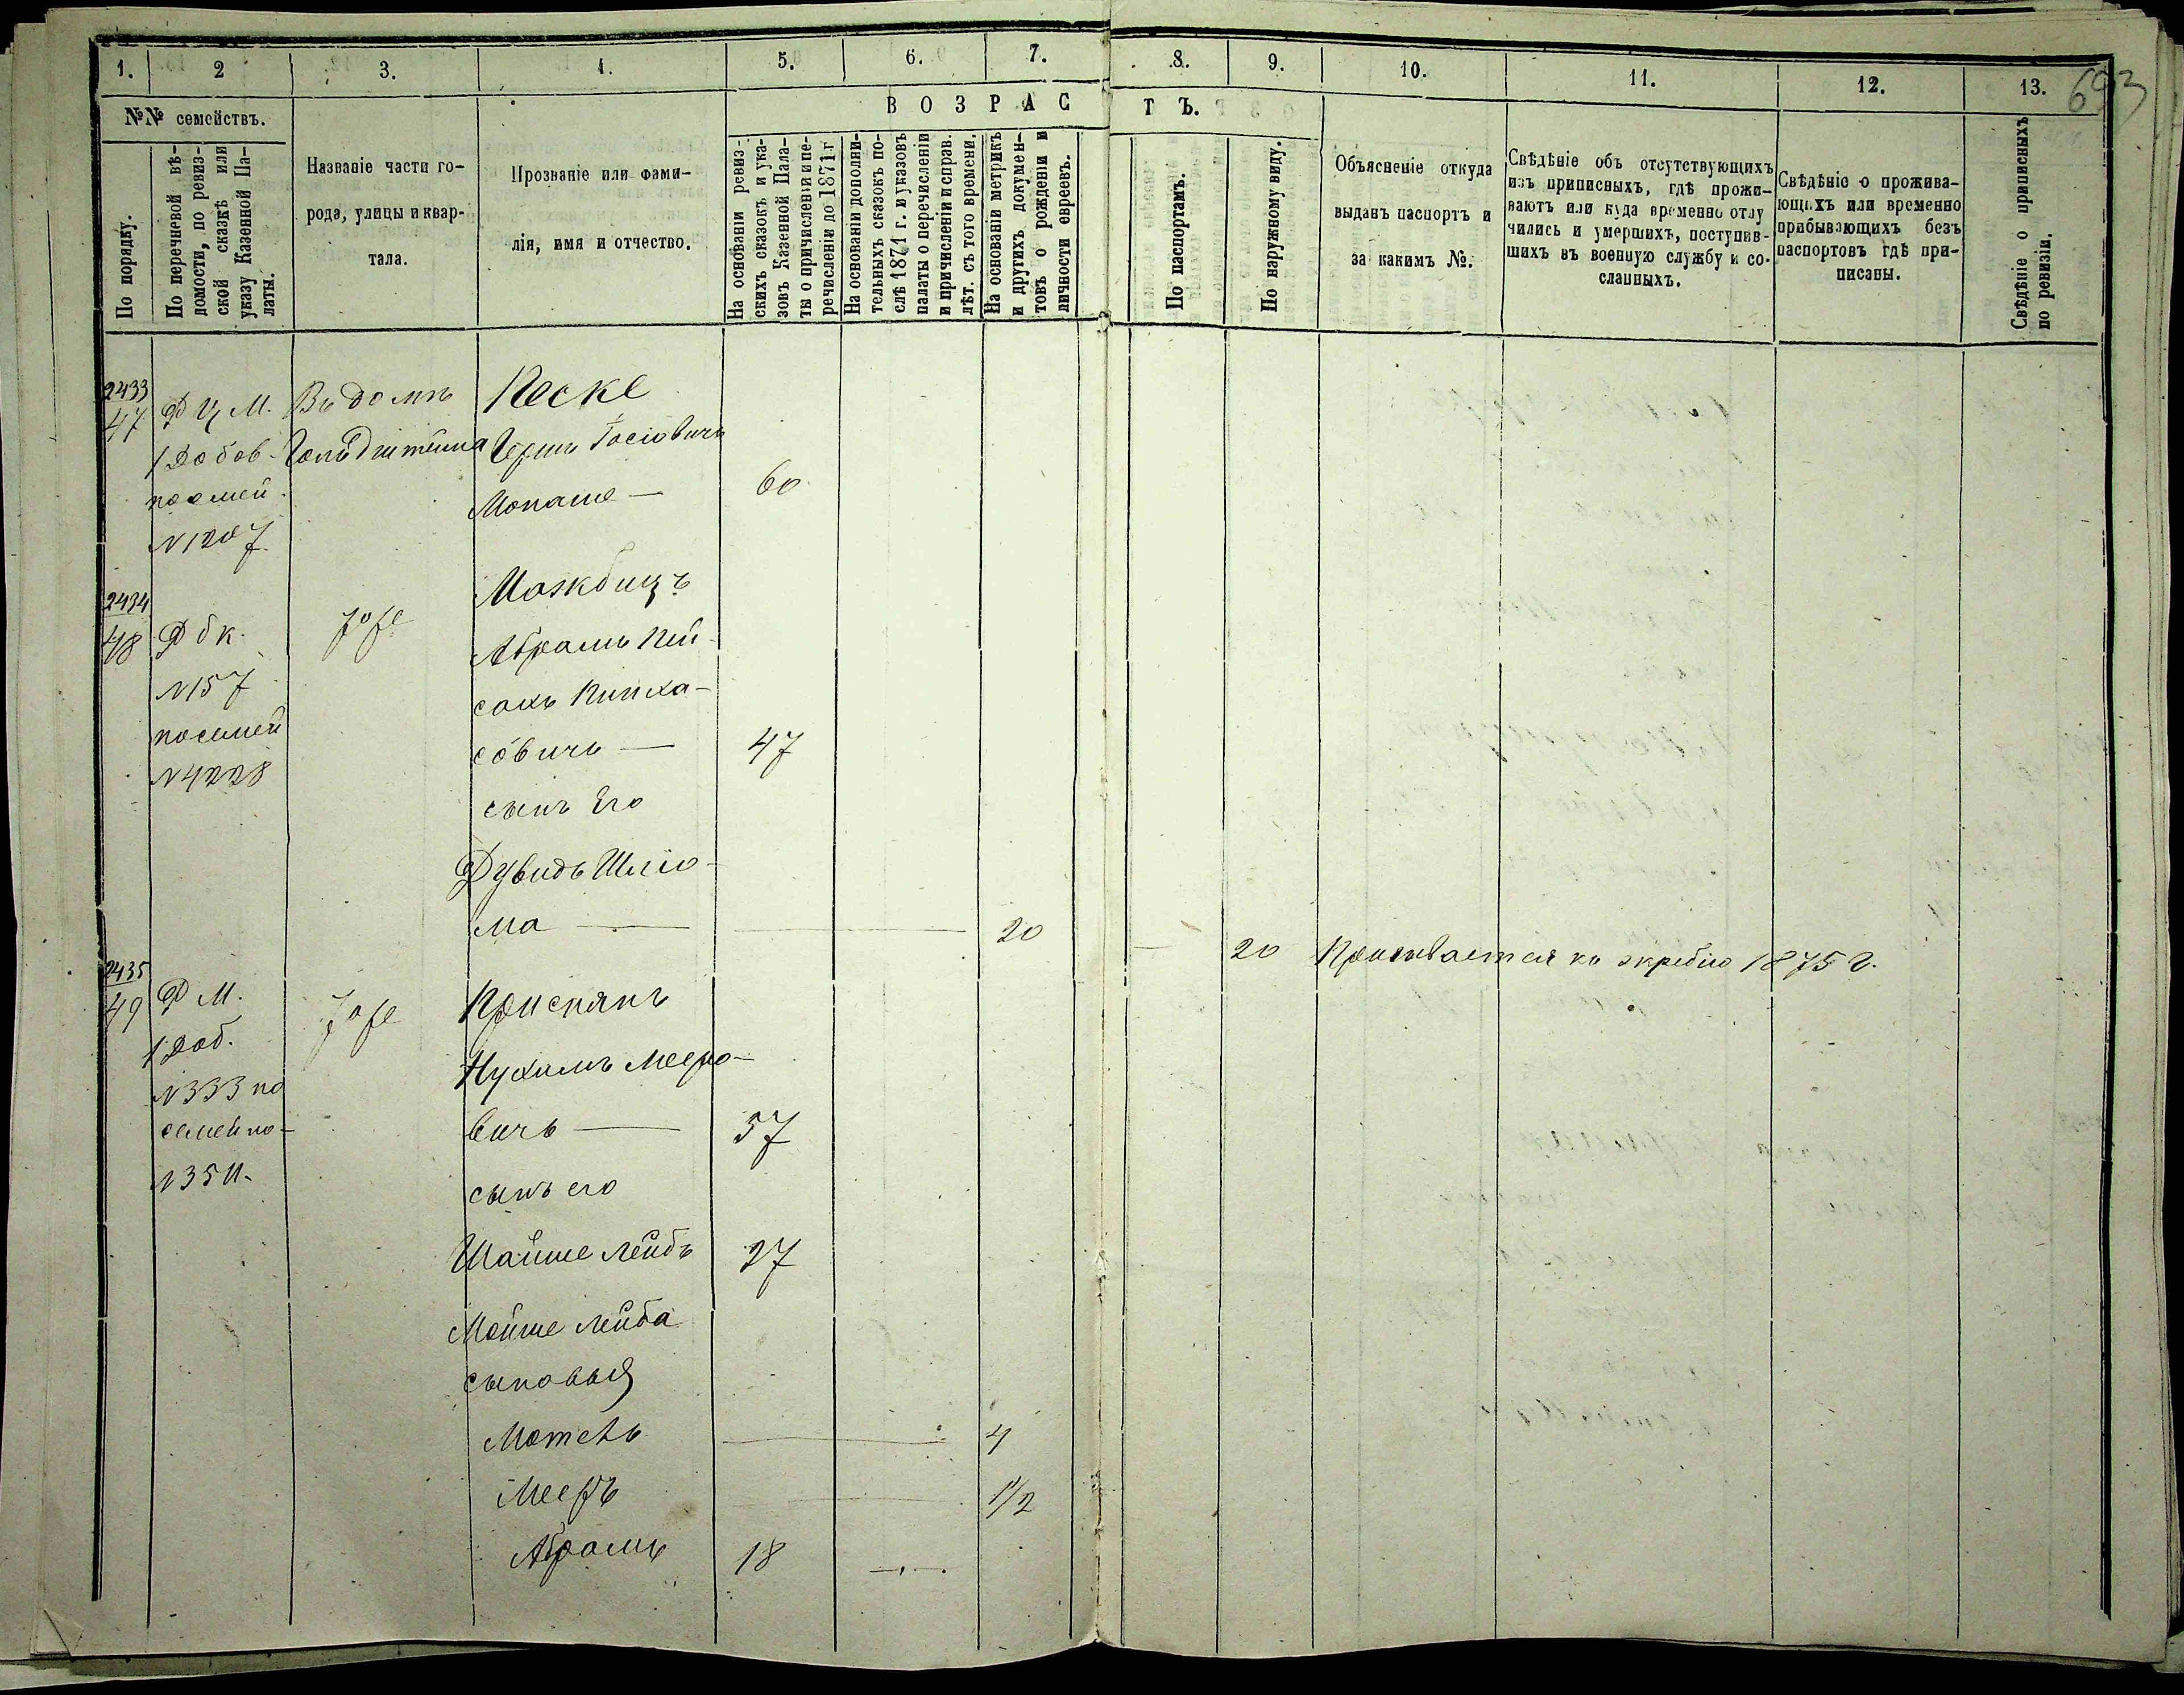 1. 2 3. 4. 5. 6. 7. 8. 9. 10. 11. 12. 13. 693
№№ семействъ.
В О З Р А С Т Ъ.
По порядку.
По перечневой вѣ-
домости, по ревиз-
ской сказкѣ или
указу Казенной Па-
латы.
Названіе части го-
рода, улицы и квар-
тала.
Прозваніе или фами-
лія, имя и отчество.
На основаніи ревиз-
скихъ сказокъ и ука-
зовъ Казенной Пала-
ты о причисленіи и пе-
речисленіи до 1871 г
На основаніи дополни-
тельныхъ сказокъ по-
слѣ 1871 г. и указовъ
палаты о перечисленіи
и причисленіи и справ.
лѣт. съ того времени.
На основаніи метрикъ
и другихъ докумен-
товъ о рожденіи и
личности евреевъ.
По паспортамъ.
По наружному виду.
Объясненіе откуда
выданъ паспортъ и
за какимъ №.
Свѣдѣніе объ отсутствующихъ
изъ приписныхъ, гдѣ прожи-
ваютъ или куда временно отлу
чились и умершихъ, поступив-
шихъ въ военную службу и со-
сланныхъ.
Свѣдѣніе о прожива-
ющихъ или временно
прибывающихъ безъ
паспортовъ гдѣ при-
писаны.
Свѣдѣніе о приписныхъ
по ревизіи.
2433
47 Ф Ц М. Въ домѣ Песке
1 Добов- Гольдштейна Гершъ Іосіовичъ
посмей.
Монаше — 60
N 1207
2434 Можбицъ
48 Ф б к. Тоже Абрамъ Пей-
N 157 сахъ Пинха-
посемей совичъ — 47
N 4228 сынъ Его
Дувидъ Шлio-
ма — 20 — 20 Призывается къ жребію 1875 г.
2435
49 Ф М. Тоже Крисманъ
1 Доб. Нухимъ Мееро-
N 333 по вичъ — 57
семейно-
N 3511. сынъ его
Мойше Лейбъ 27
Мойше Лейба
сыновья
Мотель — 4
Мееръ — 1/2
Абрамъ 18 —